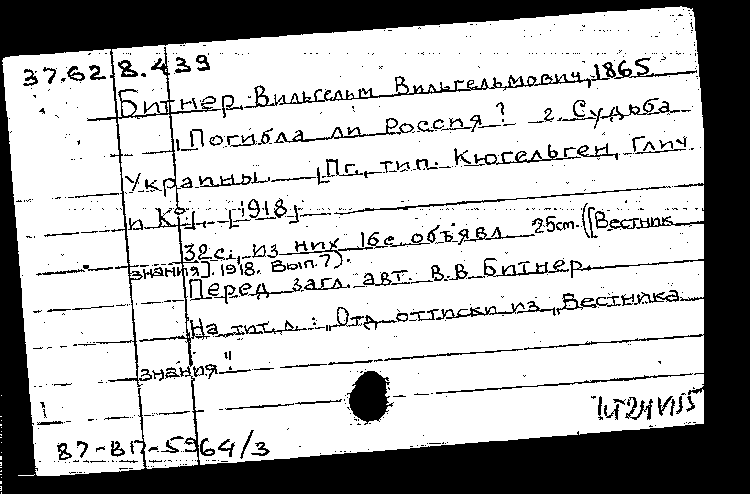 37.62.8.439
Битнер, Вильгельм Вильгельмович, 1865
Погибла ли Россия? 2. Судьба
Украины. [Пг., тип. Кюгельген, Глич
и К°], [1918]
32с., из них 16с. объявл. 25cm. ([Вестник
знания]. 1918. Вып. 7).
Перед загл. авт. В.В Битнер.
На тит. л.: „Отд. оттиски из „Вестника
знания"
1
87-ВП-5964/3